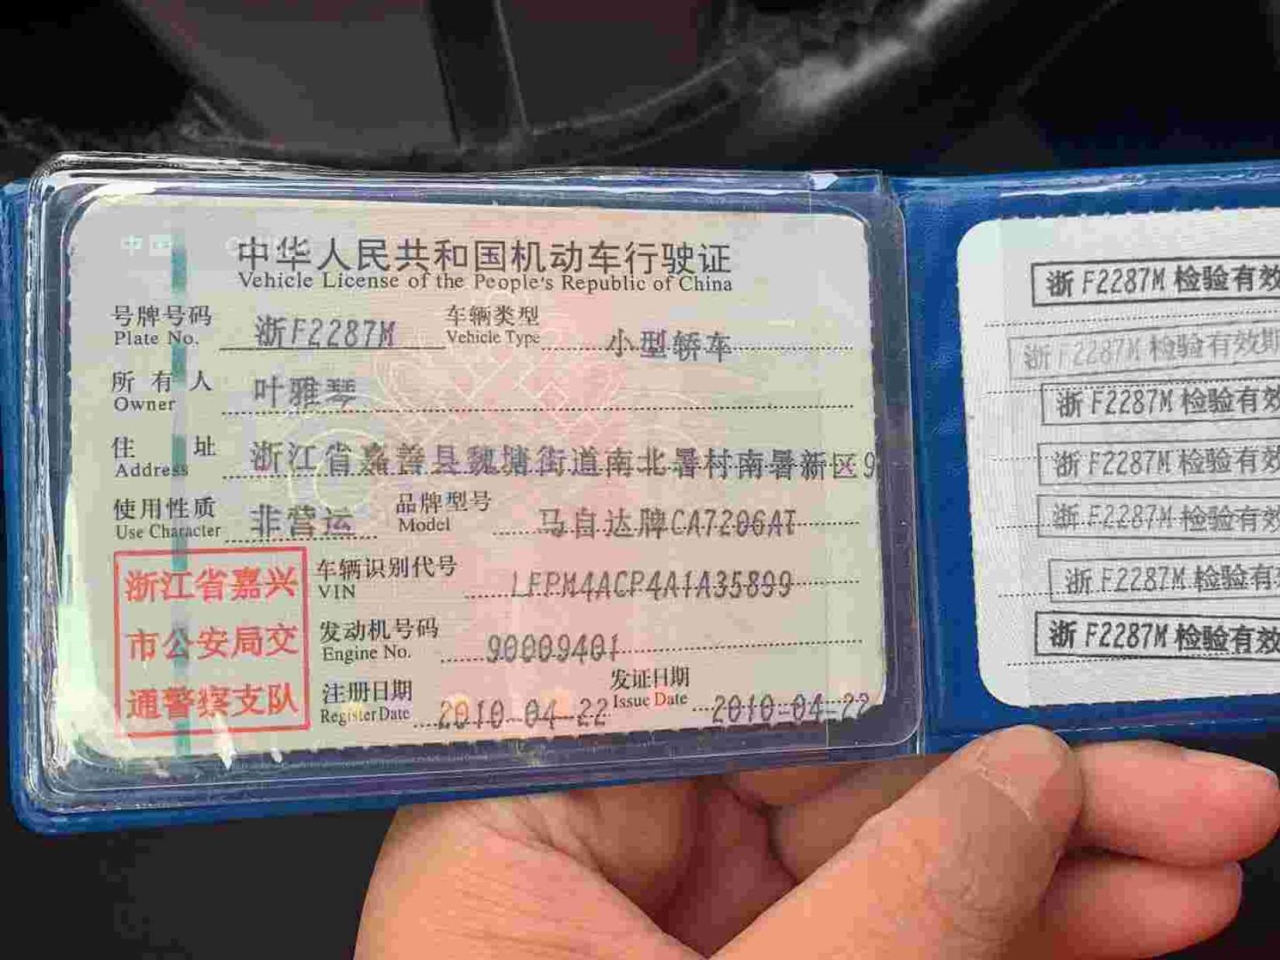 中华人民共和国机动车行驶证
Vehicle License of the People's Republic of China
号牌号码 浙F2287M 车辆类型 小型轿车
Plate No. Vehicle Type
所有人 叶雅琴
Owner
住址 浙江省嘉善县魏塘街道南北暑村南暑新区9
Address
使用性质 非营运 品牌型号 马自达牌CA7206AT
Use Character Model
车辆识别代号 LFPM4ACP4A1A35899
VIN
发动机号码 90009401
Engine No.
注册日期 2010-04-22 发证日期 2010-04-22
Register Date Issue Date
浙江省嘉兴
市公安局交
通警察支队
浙F2287M检验有效
浙F2287M检验有效期
浙F2287M检验有效
浙F2287M检验有效
浙F2287M检验有效
浙F2287M检验有
浙F2287M检验有效